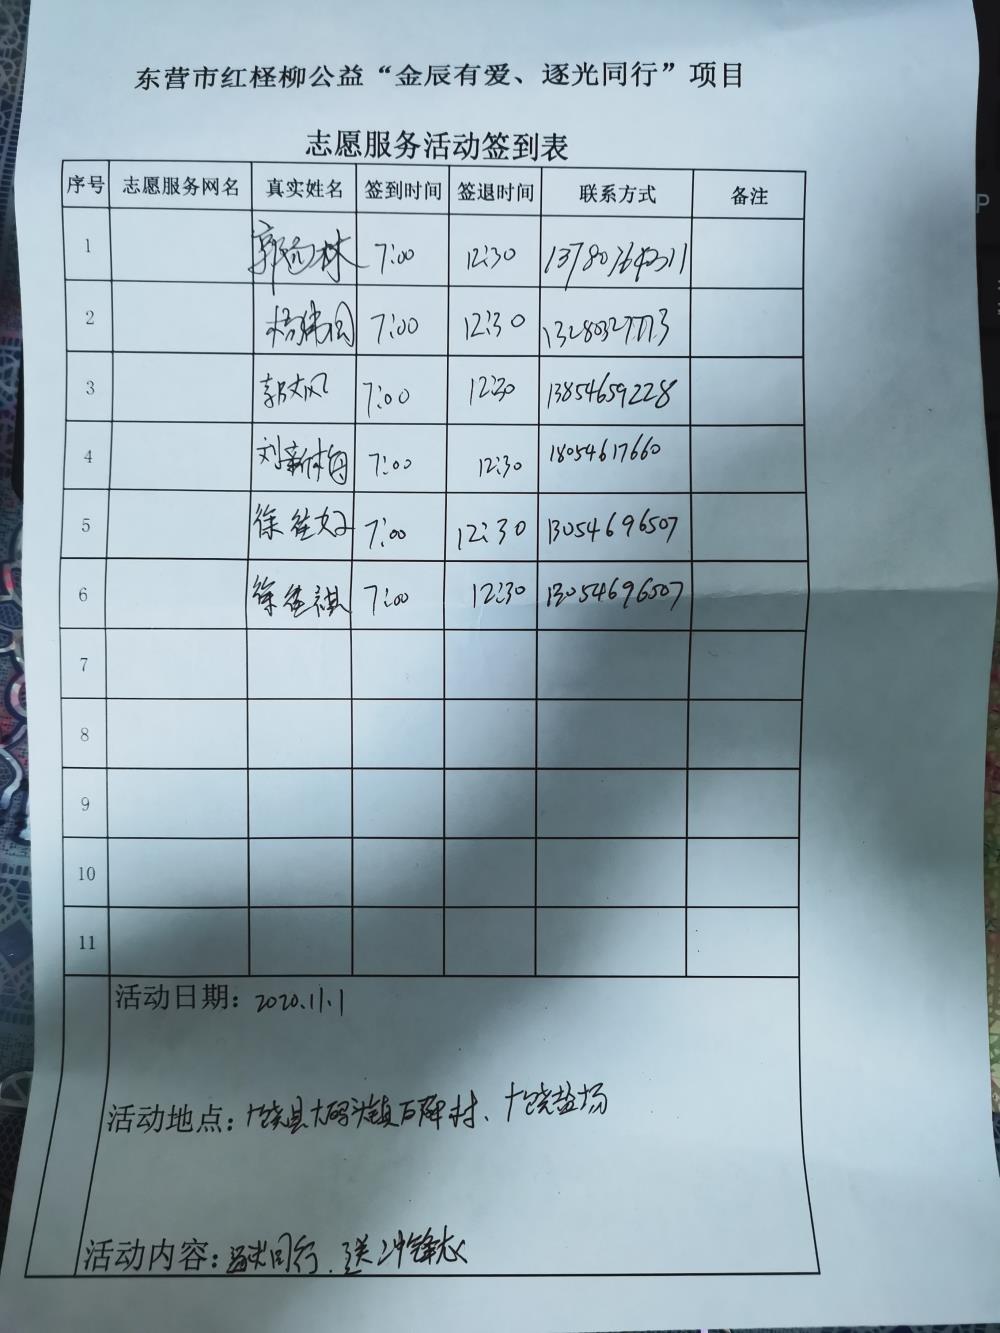 东营市红柽柳公益“金辰有爱、逐光同行”项目
志愿服务活动签到表
序号 志愿服务网名 真实姓名 签到时间 签退时间 联系方式 备注
1 7:00 12:30
2 7:00 12:30
3 7:00 12:30 13854659228
4 刘新梅 7:00 12:30 18054617660
5 徐 7:00 12:30 13054696507
6 徐 祺 7:00 12:30 13054696507
7
8
9
10
11
活动日期：2020.11.1
活动地点：广饶县大码头镇 村、广饶盐场
活动内容：逐光同行、送冲锋衣
P